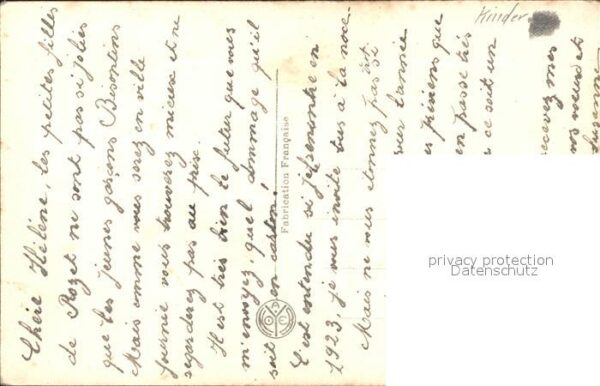 Chère Hélène, les petites filles
de Rozet ne sont pas si jolies
que les jeunes garçons Bisontins
Mais comme vous serez en ville
fournie vous trouverez mieux et ne
regarderez pas au prix.
Il est très bien le futur que vous
m'envoyez quel dommage qu'il
soit en carton!
C'est entendu si je rencontre en
1923, je vous invite tous à la noce.
Mais ne vous étonnez pas si
l'année
que
en passe très
ce soit un
recevez mes
vœux et
Suzanne
Fabrication Française
Kinder
privacy protection
Datenschutz